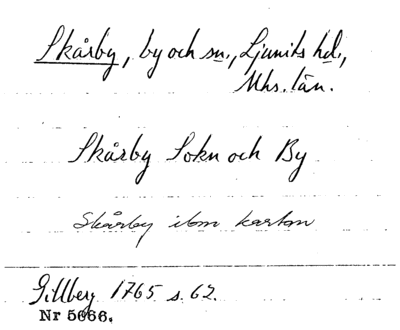 Skårby, by och sn., Ljunits hd.,
Mhs. län.
Skårby Sokn och By
Skårby ibm kartan
Gillberg 1765 s. 62.
Nr 5666.